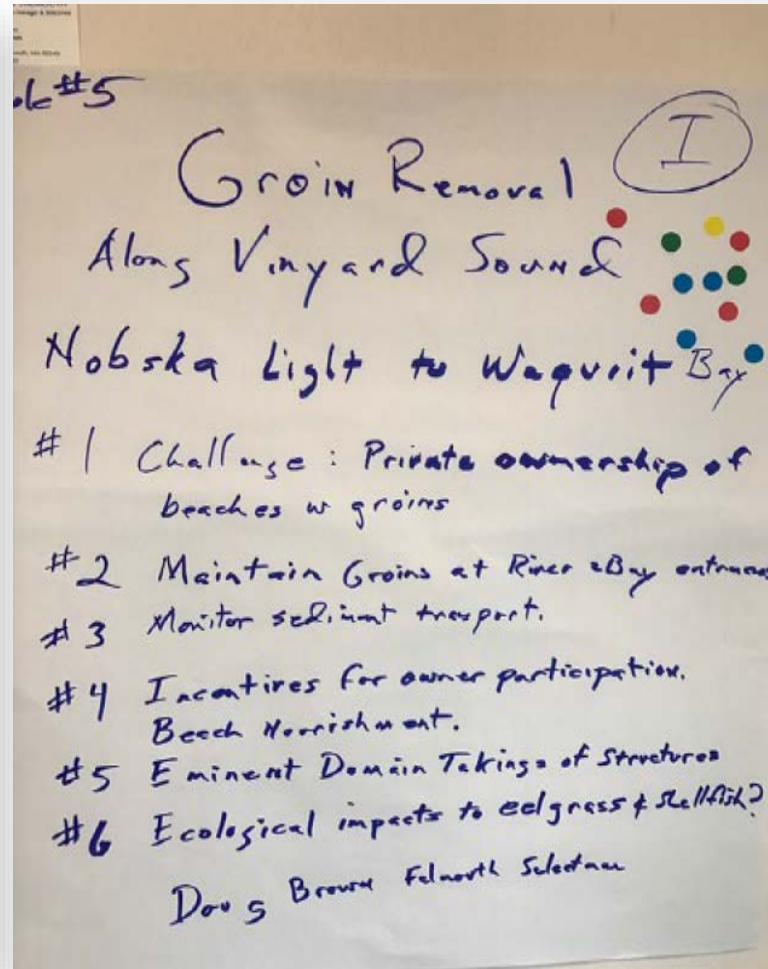 #5
I
Groin Removal
Along Vinyard Sound
Nobska Light to Waquoit Bay
#1 Challenge : Private ownership of
beaches w groins
#2 Maintain Groins at River & Bay entrances
#3 Monitor sediment transport.
#4 Incentives for owner participation.
Beach Nourishment.
#5 Eminent Domain Takings of Structures
#6 Ecological impacts to eelgrass & shellfish?
Doug Brown Falmouth Selectman